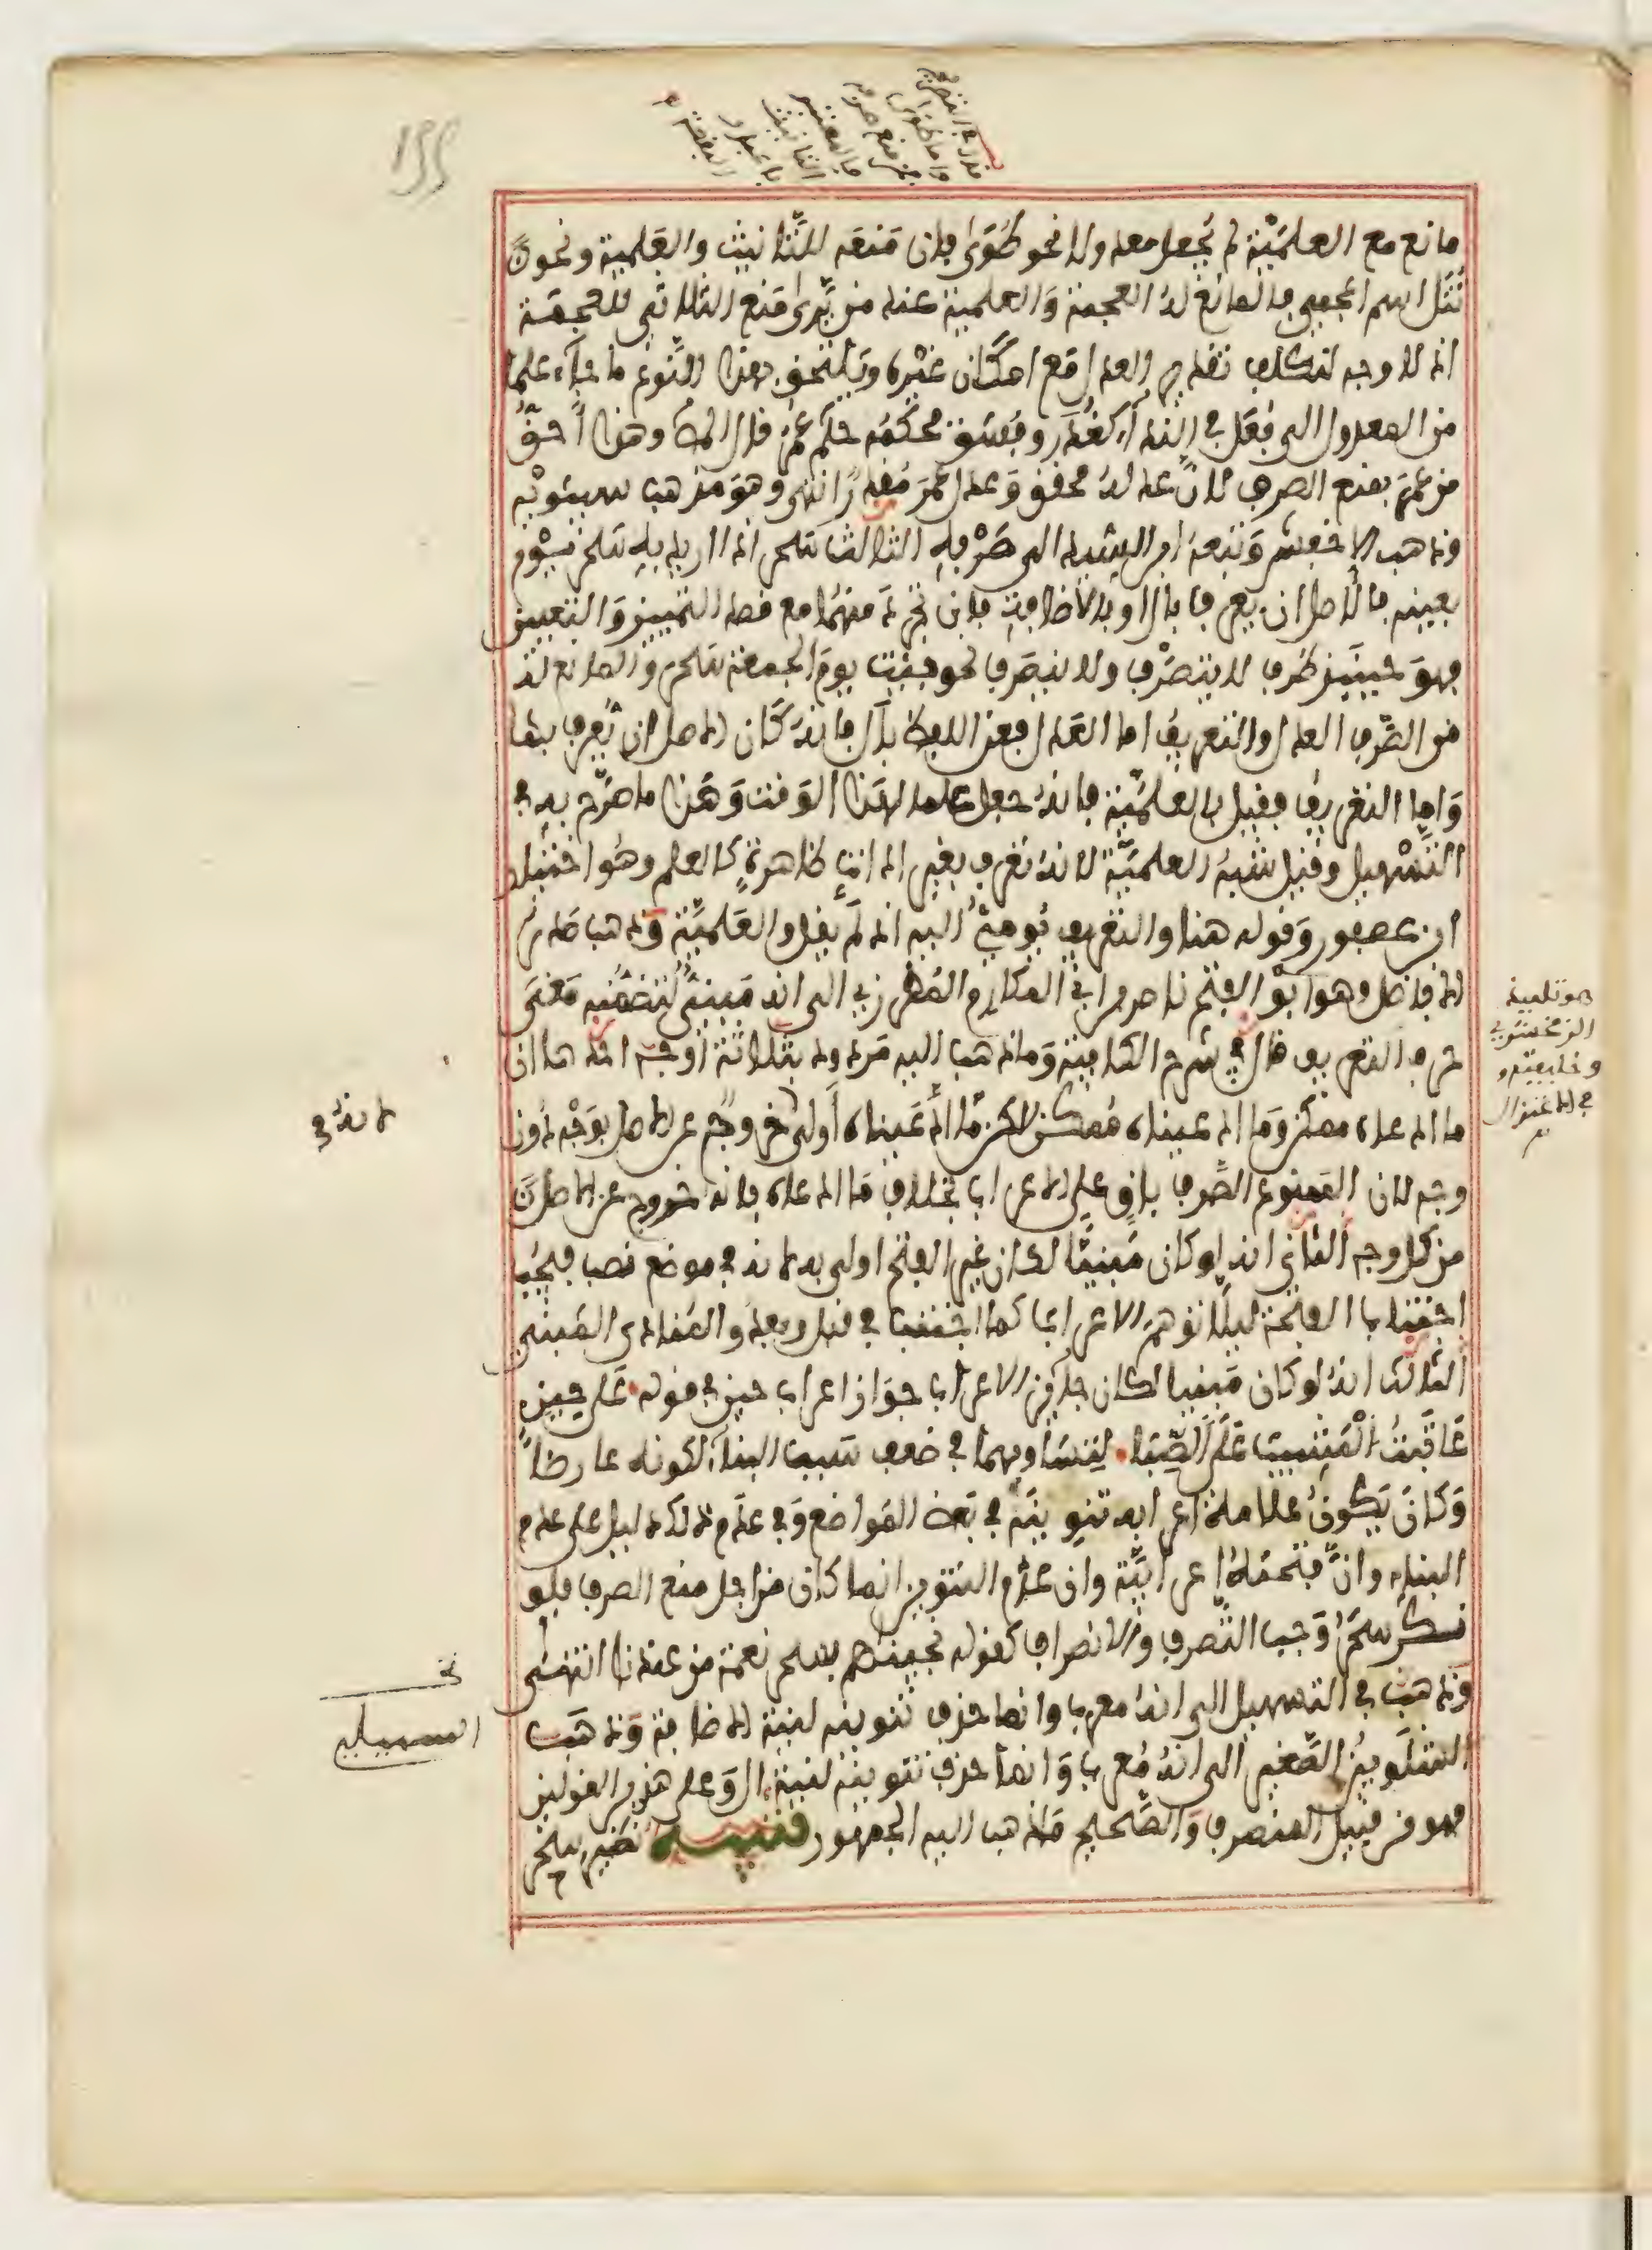 مانع مع العلمية لم يجعل معدولا نحو طوى فان منعه للتانيث والعلمية ونحو
تتل اسم اعجمي فالمانع له العجمة والعلمية عند من يرى منع الثلاثي للعجمة
اذ لا وجه لتكلف تقدير العدل مع امكان غيره ويلتحق بهذا النوع ما جاء علما
من المعدول الى فعل في النداء كغدر وفسق فحكمه حكم عمر قال المص وهذا احق
من عمر بمنع الصرف لان عدله محقق وعدل عمر مقدر انتهى وهو مذهب سيبويه
وذهب الاخفش وتبعه ابن السيد الى صرفه الثالث سحر اذا اريد به سحر يوم
بعينه فالاصل ان يعرف بال او بالاضافة فان تجرد منهما مع قصد التمييز والتعيين
فهو حينئذ ظرف لا يتصرف ولا ينصرف نحو جئت يوم الجمعة سحر والمانع له
من الصرف العدل والتعريف اما العدل فعن اللفظ بال فانه كان الاصل ان يعرف بها
واما التعريف فقيل بالعلمية فانه جعل علما لهذا الوقت وهذا ما صرح به في
التسهيل وقيل بشبه العلمية لانه تعرف بغير اداة ظاهرة كالعلم وهو اختيار
ابن عصفور وقوله هنا والتعريف يومئ اليه اذ لم يقل والعلمية وذهب صدر
الافاضل وهو ابو الفتح ناصر بن ابي المكارم المطرزي الى انه مبني لتضمنه معنى
حرف التعريف قال في شرح الكافية وما ذهب اليه مردود بثلاثة اوجه احدها ان
ما ادعاه ممكن وما ادعيناه ممكن لاكن ما ادعيناه اولى خروج عن الاصل بوجه دون
وجه لان الممنوع الصرف باق على الاعراب بخلاف ما ادعاه فانه خروج عن الاصل
من كل وجه الثاني انه لو كان مبنيا لكان غير الفتح اولى به لانه في موضع نصب فيجب
اجتناب الفتحة ليلا توهم الاعراب كما اجتنبت في قبل وبعد والمنادى المبني
الثالث انه لو كان مبنيا لكان جائز الاعراب جواز اعراب حين في قوله على حين
عاتبت المشيب على الصبا لتساويهما في ضعف سبب البناء لكونه عارضا
وكان يكون علامة اعرابه تنوينه في بعض المواضع وفي عدم ذلك دليل على عدم
البناء وان فتحته اعرابية وان عدم التنوين انما كان من اجل منع الصرف فلو
نكر سحر وجب التصرف والانصراف كقوله نجيناهم بسحر نعمة من عندنا انتهى
وذهب في التسهيل الى انه معرب وانما حذف تنوينه لنية الاضافة وذهب
الشلوبين الصغير الى انه معرب وانما حذف تنوينه لنية ال وعلى هذين القولين
فهو من قبيل المنصرف والصحيح ما ذهب اليه الجمهور تنبيه نظير سحر
هو تلميذ
الزمخشري
وخليفته
في الاعتزال
لانه في
نخ
السهيلي